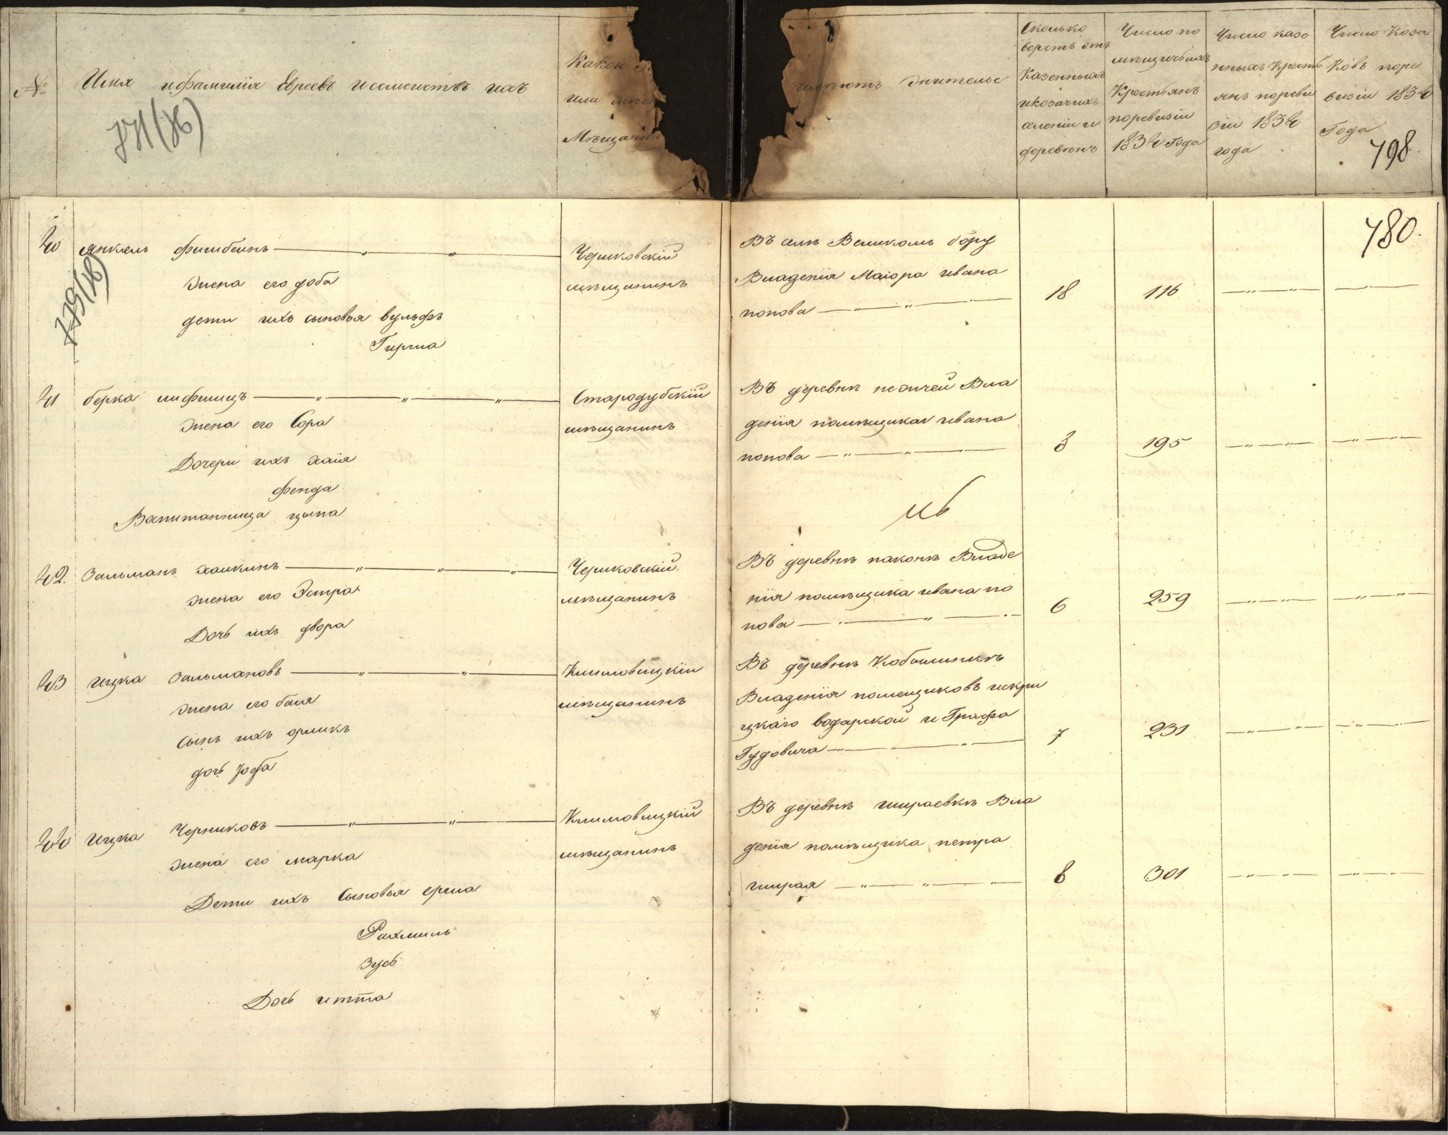 № Имя и фамилiя Евреевъ и семействъ ихъ
Какой
или
Мѣщанинъ
имѣютъ жительс
Сколько
верстъ отъ
Казенныхъ
и козачихъ
селенiи и
деревень
Число по
мѣщичьихъ
Крестьянъ
по ревизiи
1834 Года
Число казе
нныхъ Кресть
янъ по реви
зiи 1834
года
Число Коза
ковъ по ре
визiи 1834
Года
798
780.
40 Янкель Фишбеинъ
жена его доба
дети ихъ сыновья вульфъ
Гирша
Чериковскiй
мѣщанинъ
Въ селѣ Великомъ бору
Владенiя Маiора ивана
попова
18 116
41 берка лифшицъ
жена его Сора
Дочери ихъ хаiя
фейга
Воспитанница ципа
Стародубскiй
мѣщанинъ
Въ деревнѣ Вла
денiя помѣщика ивана
попова
3 195
42. Залманъ хаикинъ
жена его Эстра
Дочь ихъ двора
Чериковскiй
мѣщанинъ
Въ деревнѣ Владе
нiя помѣщика ивана по
пова
6 259
43 ицка Залмановъ
жена его бася
Сынъ ихъ
дочь
Климовицкiи
мѣщанинъ
Въ деревнѣ Кобылинкѣ
Владенiя помещиковъ искри
цкаго водарской и Графа
Гудовича
7 231
44 ицка Черниковъ
жена его марка
Дети ихъ Сыновья ерша
Рахмиль
Зусь
Дочь итта
Климовицкiй
мѣщанинъ
Въ деревнѣ гираевкѣ Вла
денiя помѣщика петра
гирая
8 301